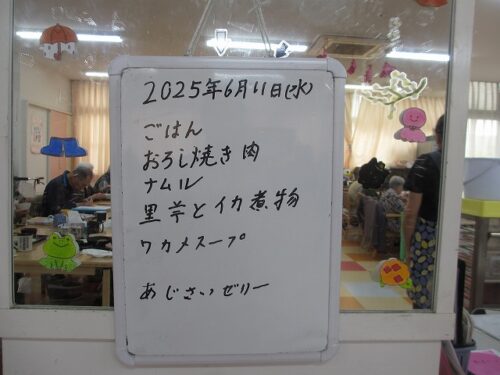 2025年6月11日(水)
ごはん
おろし焼き肉
ナムル
里芋とイカ煮物
ワカメスープ
あじさいゼリー